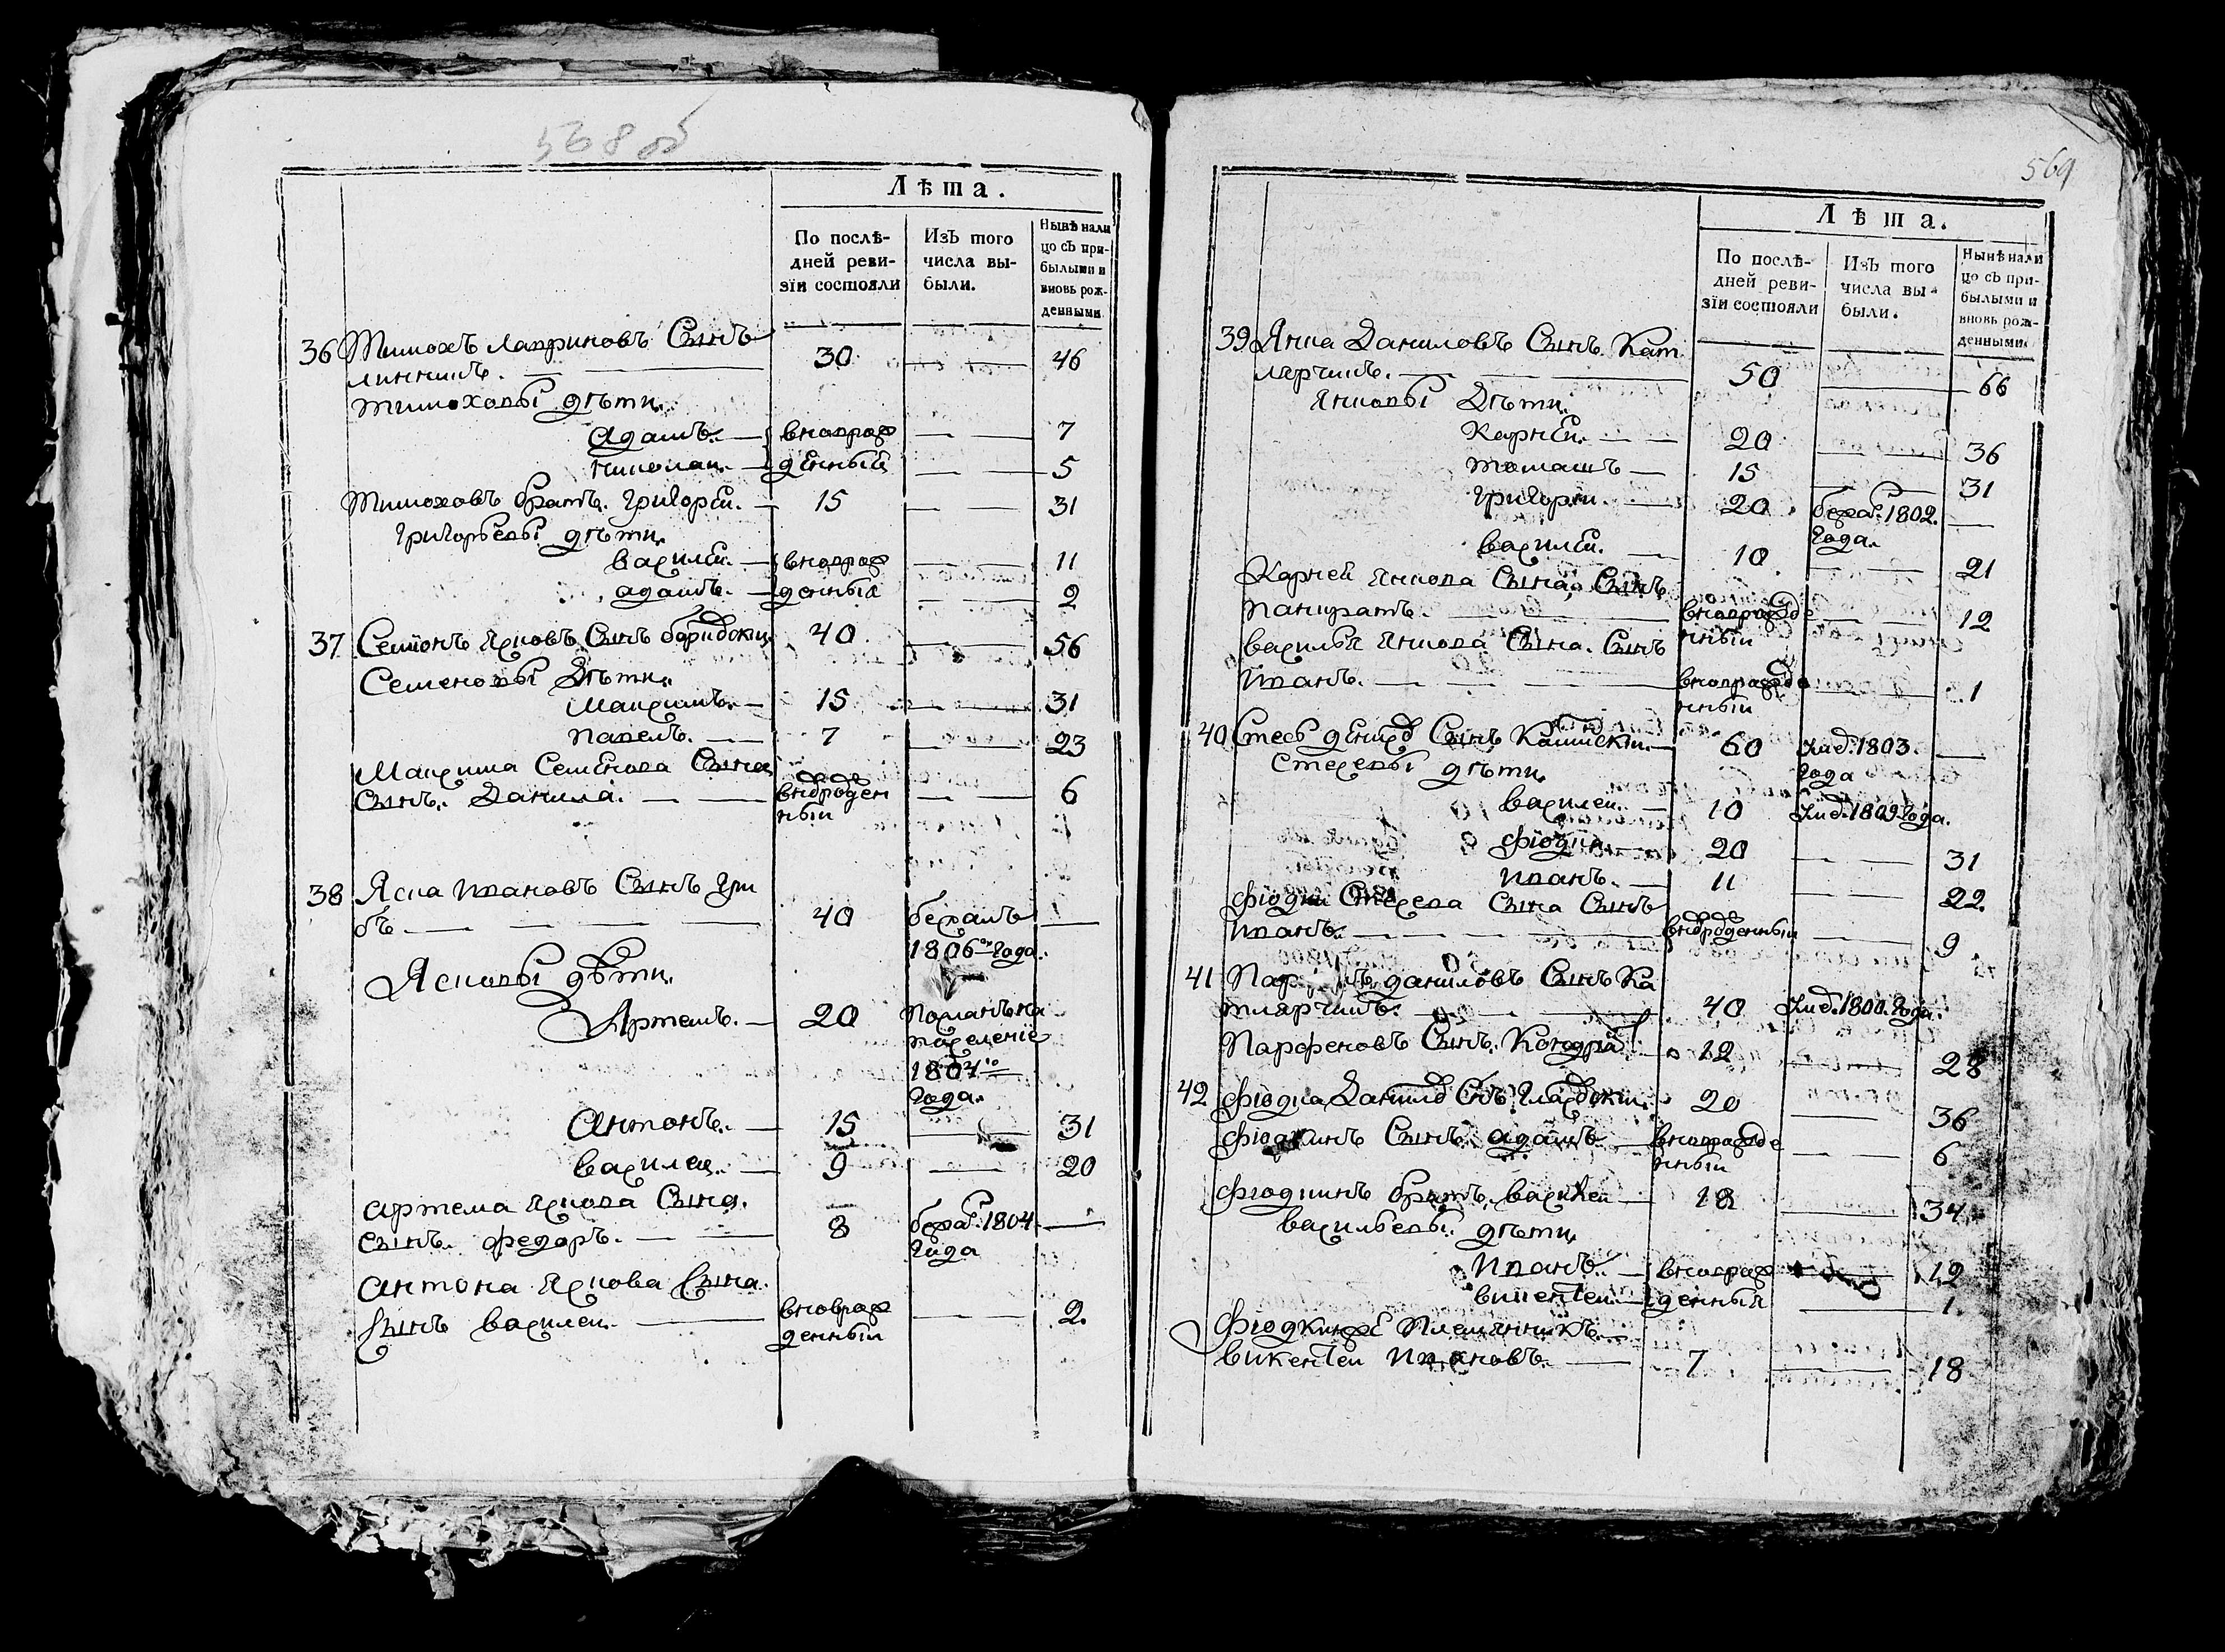 568 об
Лѣта.
По послѣ-
дней реви-
зїи состояли
Изъ того
числа вы-
были.
Нынѣ нали
цо съ при-
былыми и
вновь рож-
денными
36 Тимохъ Лавриновъ Сынъ
30 46
Тимоховы дѣти
Адамъ. вновьрож 7
денный 5
Тимоховъ братъ. Григорей. 15 31
Григорьевы дѣти
Василей. вновьрож 11
адамъ. денныя 2
37 Семионъ Ясковъ Сынъ 40 56
Семеновы Дѣти
Максимъ. 15 31
Павелъ. 7 23
Максима Семенова Сына
Сынъ. Данила. вновроден 6
ный
38 Яска Ивановъ Сынъ Гри
бъ 40 бежалъ
1806го Года.
Ясковы дѣти
Артемъ. 20 Посланъ на
поселение
1807го
Года.
Антонъ. 15 31
Василей. 9 20
Артема Яскова Сына.
Сынъ. Федоръ. 8 бежа. 1804
Года
Антона Яскова Сына.
Сынъ Василей. вноврож 2.
денный
569
Лѣта.
По послѣ-
дней реви-
зїи состояли
Изъ того
числа вы-
были.
Нынѣ нали
цо съ при-
былыми и
вновь рож-
денными
39 Янка Даниловъ Сынъ Кат
лярчикъ. 50 66
Янковы Дѣти
Карней. 20 36
Томашъ 15 31
Григорей. 20 бежа. 1802.
Года.
Василей. 10 21
Карнея Янкова Сына Сынъ
Панкратъ. вновьрожде 12
нный
Василья Янкова Сына. Сынъ
Иванъ. вновьрожде 1
нный
40 Сынъ 60 1803.
Года
дѣти
Василей. 10 1809 Года.
Фіодка 20 31
Иванъ. 11 22.
Фіодки Сына Сынъ
Иванъ. вновроденный 9
41 Даниловъ Сынъ Ка
тлярчикъ. 40 1800. Года.
Парфеновъ Сынъ. Кондра 12 28
42 Фіодка Данило Снъ 20 36
Фіодкинъ Сынъ. адамъ вновьрожде 6
нный
Фіодкинъ братъ. Василей 18 34
Васильевы дѣти
Иванъ. вновьрож 12
Викентей. денныя 1
Фіодкинже Племянникъ
Викентей Ивановъ. 7 18